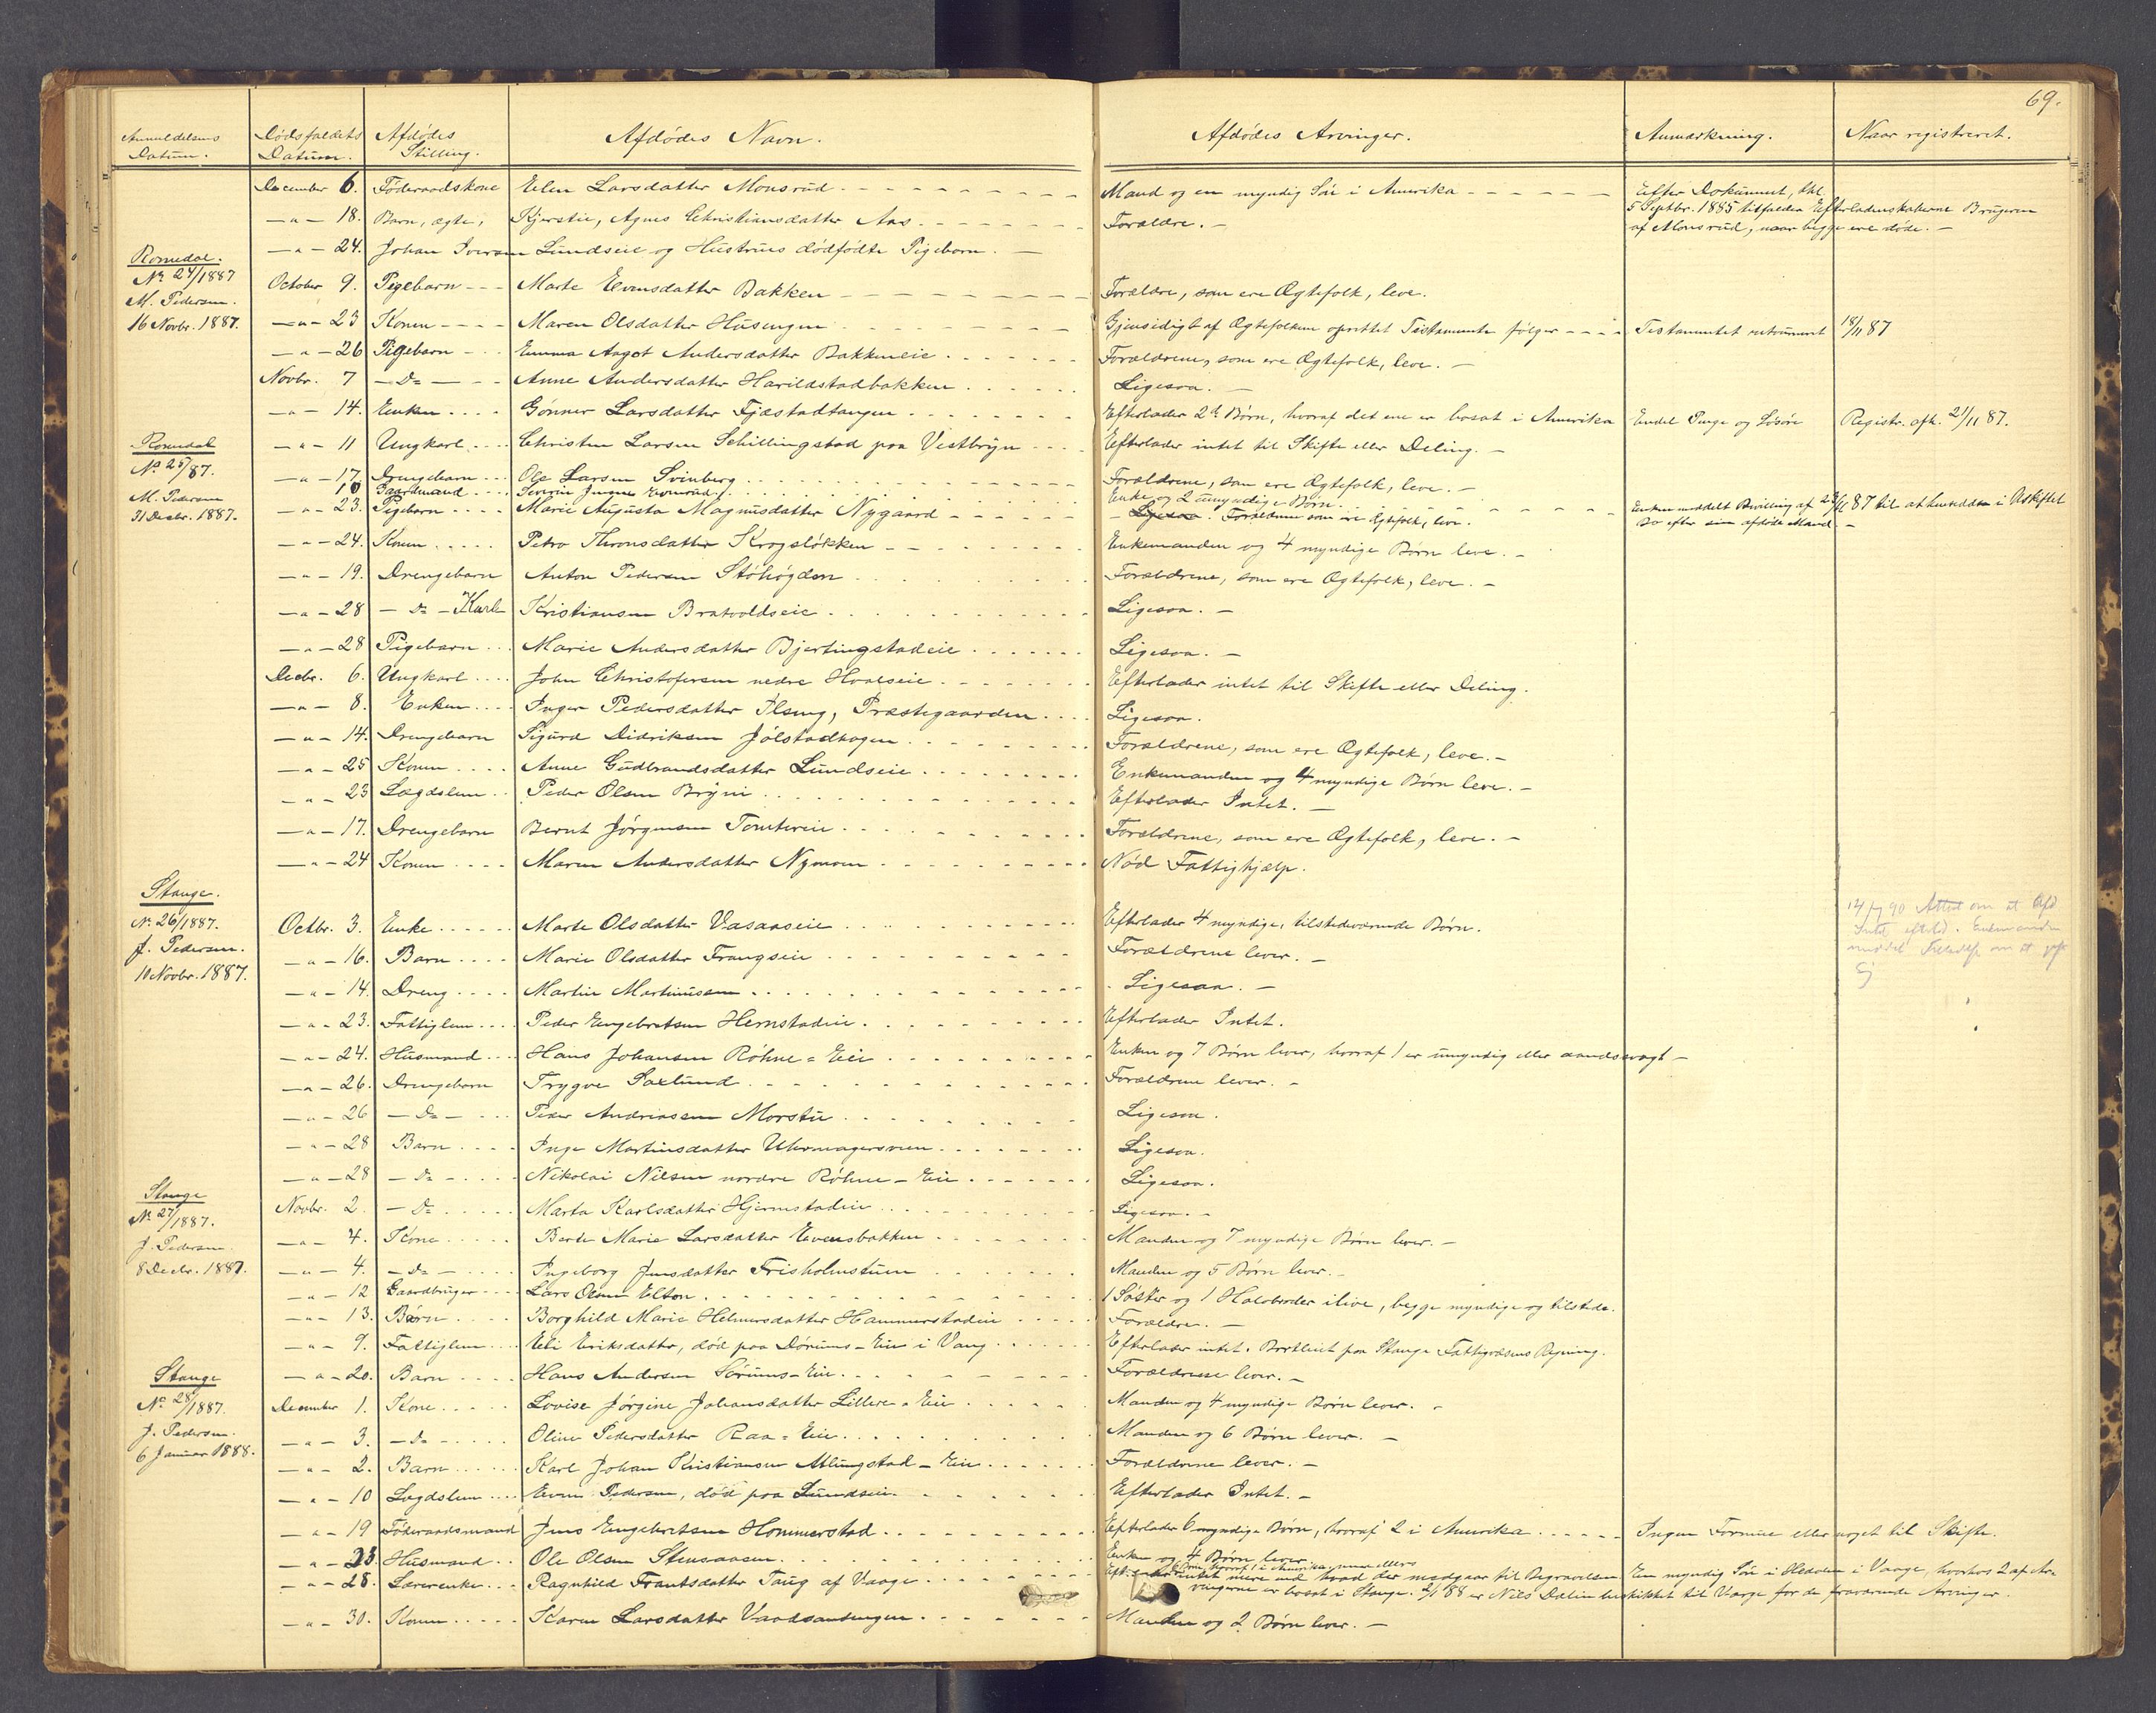 69.
Anmeldelsens Datum. Dødsfaldets Datum. Afdødes Stilling. Afdødes Navn. Afdødes Arvinger. Anmærkning. Naar registreret.
December 6. Föderaadskone Elen Larsdatter Monsrud - - - Mand og en myndig Sön i Amerika - - - Efter Dokument, dat.
5 Septbr. 1885 tilfalder Efterladenskaberne Brugeren
af Monsrud, naar begge ere döde. -
-"- 18. Barn, ægte, Kjerstie, Agnes Christiansdatter Aas - - - Forældre. -
-"- 24. Johan Iversen Lundseie og Hustrues dödfödte Pigebarn. -
Romedal.
No 24/1887
M. Pedersen.
16 Novbr. 1887.
October 9. Pigebarn - - Marte Evensdatter Bakken - - - Forældre, som ere Ægtefolk, leve.
-"- 23 Konen - - - Maren Olsdatter Husengen - - - Gjensidigt af Ægtefolkene oprettet Testamente følger - - - Testamentet returneret 18/11 87
-"- 26 Pigebarn - - Emma Aagot Andersdatter Bakkeneie - - - Forældrene, som ere Ægtefolk, leve. -
Novbr. 7 - Do - - Anne Andersdatter Harildstadbakken - - - Ligesaa. -
-"- 14. Enken - - - Gönner Larsdatter Fjæstadtangen - - - Efterlader 2de Börn, hvoraf det ene er bosat i Amerika Endel Penge og Lösöre Registr. afh. 21/11 87.
Romedal
No 25/87.
M. Pedersen
31 Decbr. 1887.
-"- 11 Ungkarl - - - Christen Larsen Schillingstad paa Vestbryn - - - Efterlader intet til Skifte eller Deling. -
-"- 17. Drengebarn - - Ole Larsen Svinberg - - - Forældrene, som ere Ægtefolk, leve. -
10 Gaardmand - - Severin Jensen - - - Enke og 2 umyndige Börn. - - - Enken meddelt Bevilling af 23/11 87 til at hensidde i Uskiftet
Bo efter sin afdöde Mand. -
-"- 23. Pigebarn - - - Marie Augusta Magnusdatter Nygaard - - - Ligesaa. Forældrene som ere Ægtefolk, leve.
-"- 24. Konen - - - Petra Thronsdatter Krogsløkken - - - Enkemanden og 4 myndige Börn leve. -
-"- 19. Drengebarn Anton Pedersen Stöhögden - - - Forældrene, som ere Ægtefolk, leve. -
-"- 28 - Do - Karl Kristiansen Bratvoldseie - - - Ligesaa. -
-"- 28 Pigebarn - - Marie Andersdatter Bjertingstadeie - - - Ligesaa. -
Decbr. 6. Ungkarl - - - John Christofersen nedre Hvalseie - - - Efterlader intet til Skifte eller Deling.
-"- 8. Enken - - - Inger Pedersdatter Ilseng, Præstegaarden - - - Ligesaa.
-"- 14. Drengebarn Sigurd Didriksen Jölstadhagen - - - Forældrene, som ere Ægtefolk, leve. -
-"- 25 Konen - - - Anne Gudbrandsdatter Lundseie - - - Enkemanden og 4 myndige Börn leve. -
-"- 23 Lægdslem - - Peder Olsen Bryni - - - Efterlader Intet. -
-"- 17. Drengebarn Bernt Jörgensen Tomtereie - - - Forældrene, som ere Ægtefolk, leve. -
-"- 24 Konen - - - Maren Andersdatter Nymoen - - - Nöd Fattighjælp.
Stange.
No 26/1887.
J. Pedersen.
10 Novbr. 1887.
Octbr. 3. Enke - - - Marte Olsdatter Vasaaseie - - - Efterlader 4 myndige, tilstedeværende Börn. 90 Attest om at Afd
Intet efterld. Enkemanden
meddel om at
-"- 16. Barn - - - Marie Olsdatter Frangseie - - - Forældrene lever. -
-"- 14. Dreng - - - Martin Martinussen - - - Ligesaa. -
-"- 23. Fattiglem - - - Peder Engebretsen Hernstadeie - - - Efterlader Intet.
-"- 24. Husmand - - Hans Johansen Röhne = Eie - - - Enken og 7 Börn lever, hvoraf 1 er umyndig eller aandssvagt -
-"- 26. Drengebarn Trygve Saxlund - - - Forældrene lever. -
-"- 26 - Do - - Peder Andreassen Morstu - - - Ligesaa.
-"- 28 Barn - - - Inge Martinsdatter Uhrmagersveen - - - Ligesaa.
-"- 28 - Do - - - Nikolai Nilsen nordre Röhne - Eie - - - Ligesaa.
Stange
No 27/1887.
J. Pedersen.
8 Decbr. 1887.
Novbr. 2. - Do - - - Marta Karlsdatter Hjermstadeie - - - Ligesaa. -
-"- 4. Kone - - - Berte Marie Larsdatter Evensbakken - - - Manden og 7 myndige Börn lever. -
-"- 4. - Do - - - Ingeborg Jensdatter Frisholmstuen - - - Manden og 5 Börn lever. -
-"- 12 Gaardbruger - - Lars Olsen Elton - - - 1 Söster og 1 Halvbroder ilive, begge myndige og tilstede.
-"- 13. Barn - - - Borghild Marie Helmersdatter Hammerstadeie - - - Forældre. -
-"- 9. Fattiglem - - Eli Eriksdatter, död paa Dörums - Eie i Vang - - - Efterlader intet. Bortlicit paa Stange Fattigvæsens Regning.
-"- 20. Barn - - - Hans Andersen Sörums - Eie - - - Forældrene lever. -
Stange
No 28/1887.
J. Pedersen.
6 Januar 1888.
December 1. Kone - - - Lovise Jörgine Johansdatter Lillere = Eie - - - Manden og 4 myndige Börn lever. -
-"- 3. - Do - - - Oline Pedersdatter Raa = Eie - - - Manden og 6 Börn lever. -
-"- 2. Barn - - - Karl Johan Kristiansen Allungstad - Eie - - - Forældrene lever. -
-"- 10 Lægdslem - - - Even Pedersen, död paa Lundseie - - - Efterlader Intet. -
-"- 19 Föderaadsmand Jens Engebretsen Hommerstad - - - Efterlader 6 myndige Börn, hvoraf 2 i Amerika - - - Ingen Formue eller noget til Skifte.
-"- 23. Husmand - - Ole Olsen Stensaasen - - - Enken og 4 Börn lever.
-"- 28. Lærerenke - - Ragnhild Frantsdatter Taug af Vaage - - - intet mere end hvad der medgaar til Begravelsen Een myndig Sön i Hedalen i Vaage, hvorhos 2 af Ar-
vingerne er bosat i Stange. 2/1 88 er Nils Dalin beskikket til Værge for de fraværende Arvinger.
-"- 30. Konen - - - Karen Larsdatter Vaadsandengen - - - Manden og 2 Börn lever. -